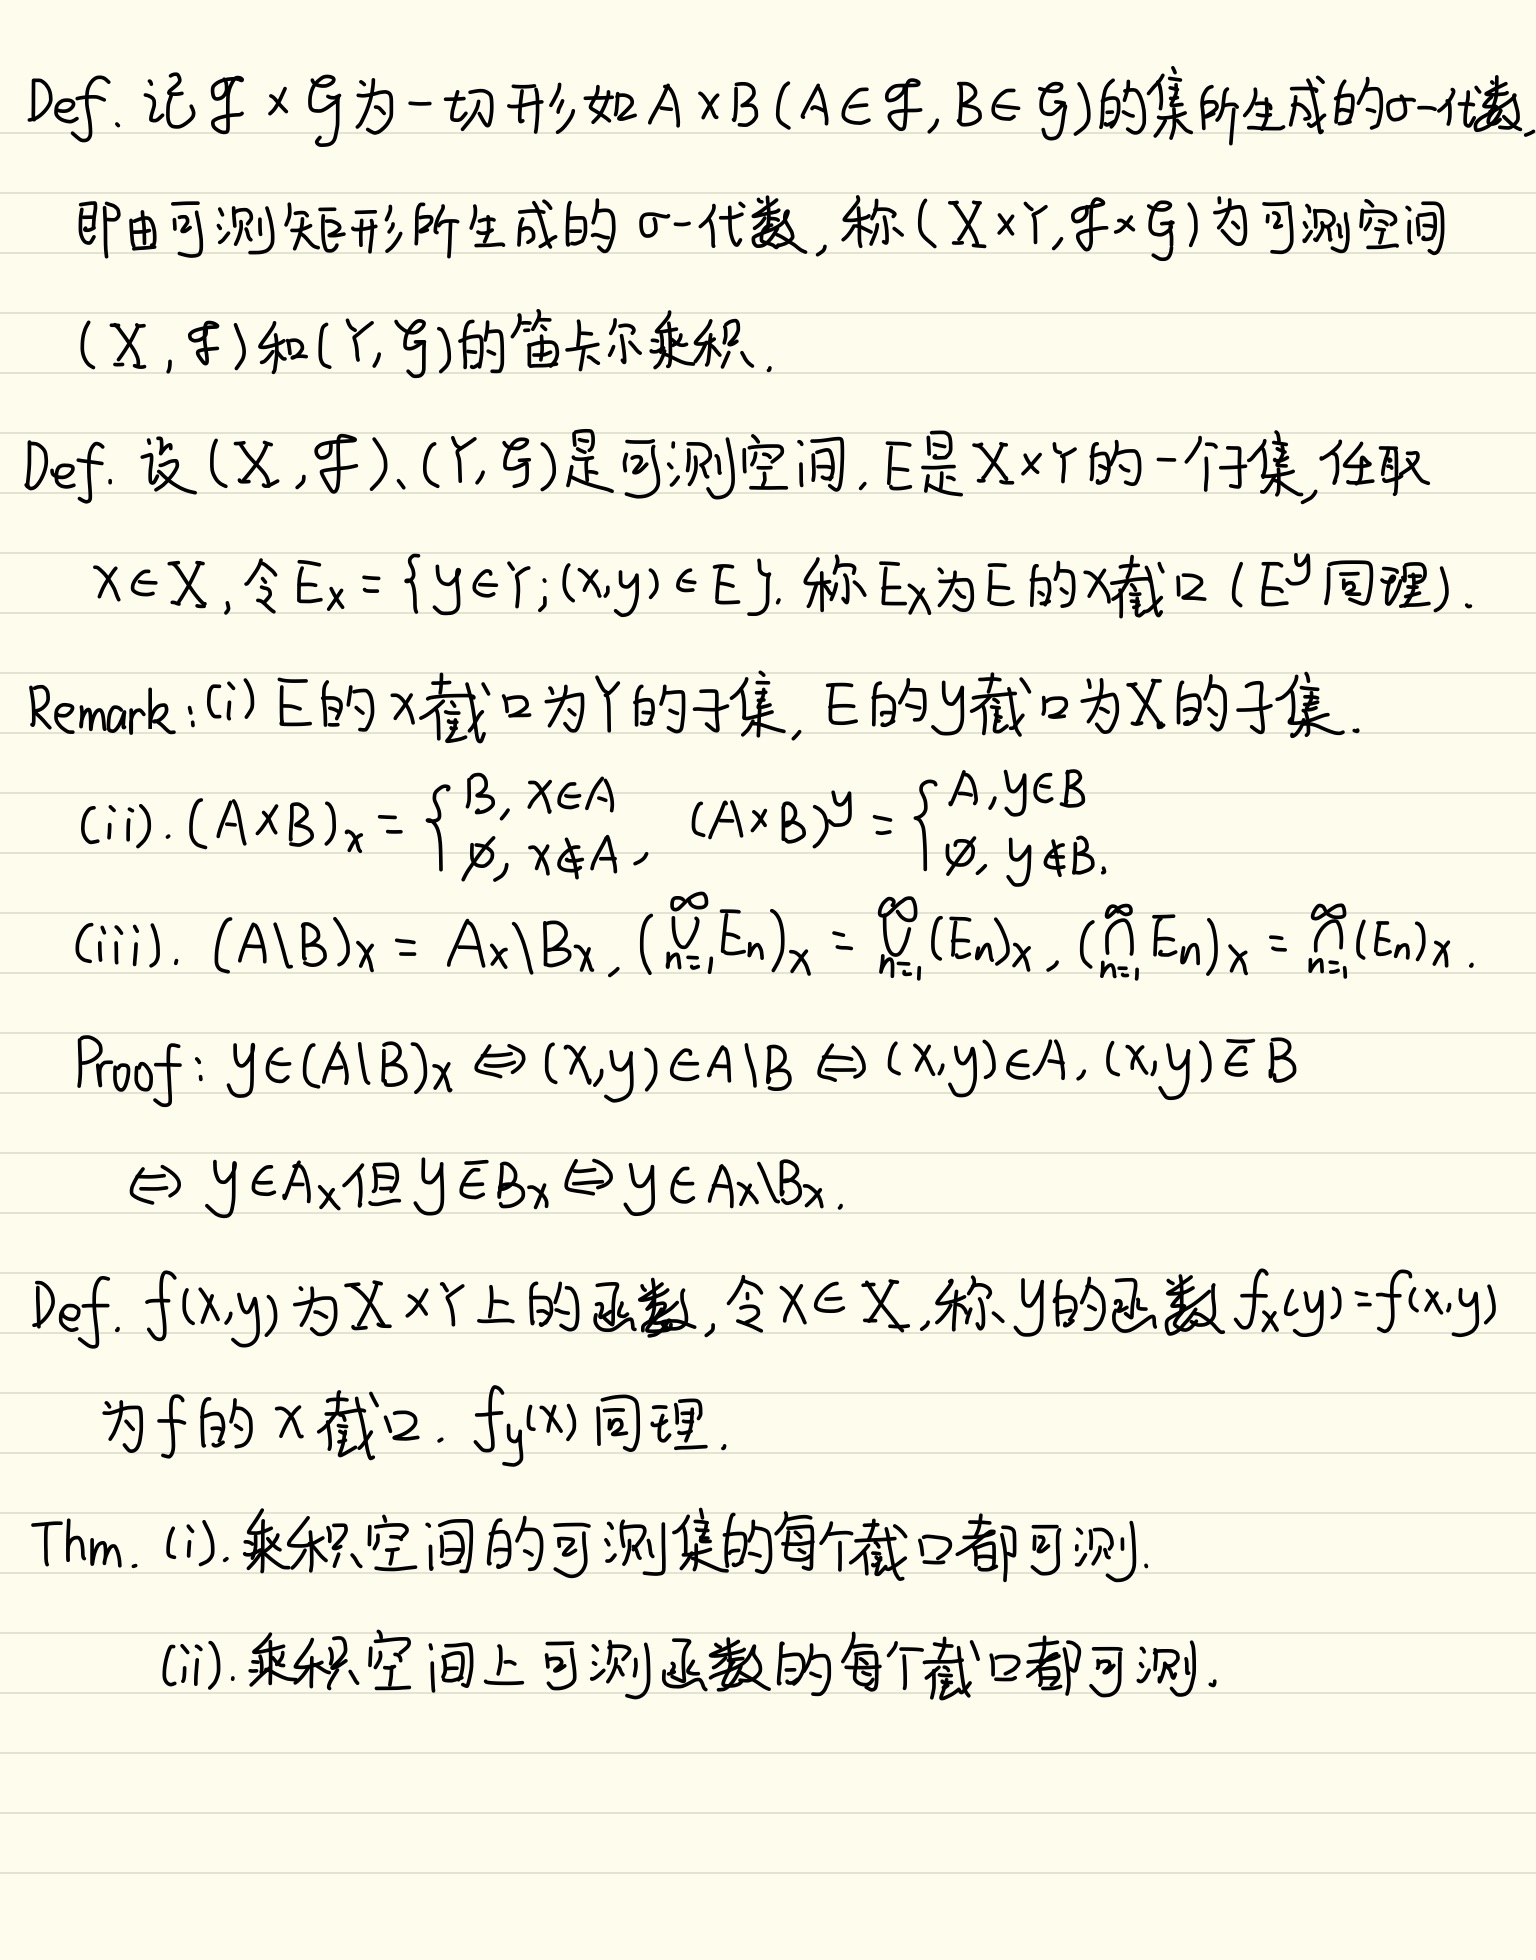 Def. 记 ℱ × 𝒢 为一切形如 A × B (A ∈ ℱ, B ∈ 𝒢) 的集所生成的σ-代数,
即由可测矩形所生成的 σ-代数, 称 (X × Y, ℱ × 𝒢) 为可测空间
(X, ℱ) 和 (Y, 𝒢) 的笛卡尔乘积.
Def. 设 (X, ℱ)、(Y, 𝒢) 是可测空间. E是 X × Y 的一个子集, 任取
x ∈ X, 令 E_x = {y ∈ Y; (x,y) ∈ E}. 称 E_x 为 E 的 x 截口 (E^y 同理).
Remark: (i) E 的 x 截口为 Y 的子集, E 的 y 截口为 X 的子集.
(ii). (A×B)_x = { B, x∈A ; ∅, x∉A , (A×B)^y = { A, y∈B ; ∅, y∉B.
(iii). (A\B)_x = A_x\B_x, (⋃_{n=1}^∞ E_n)_x = ⋃_{n=1}^∞ (E_n)_x, (⋂_{n=1}^∞ E_n)_x = ⋂_{n=1}^∞ (E_n)_x.
Proof: y∈(A\B)_x ⇔ (x,y)∈A\B ⇔ (x,y)∈A, (x,y) ∈̅ B
⇔ y∈A_x 但 y ∈̅ B_x ⇔ y∈A_x\B_x.
Def. f(x,y) 为 X × Y 上的函数, 令 x ∈ X, 称 y 的函数 f_x(y) = f(x,y)
为 f 的 x 截口. f_y(x) 同理.
Thm. (i). 乘积空间的可测集的每个截口都可测.
(ii). 乘积空间上可测函数的每个截口都可测.